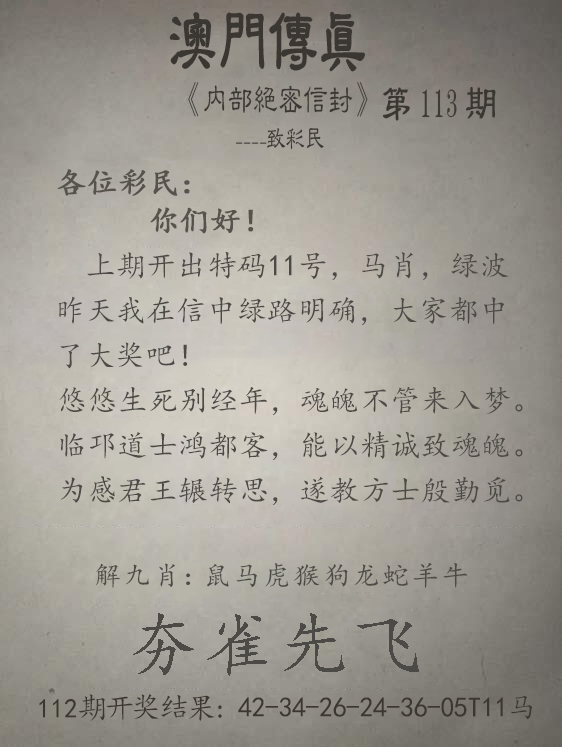 澳門傳真
《内部絕密信封》第113期
----致彩民
各位彩民：
你们好！
上期开出特码11号，马肖，绿波
昨天我在信中绿路明确，大家都中
了大奖吧！
悠悠生死别经年，魂魄不管来入梦。
临邛道士鸿都客，能以精诚致魂魄。
为感君王辗转思，遂教方士殷勤觅。
解九肖：鼠马虎猴狗龙蛇羊牛
夯雀先飞
112期开奖结果：42-34-26-24-36-05T11马